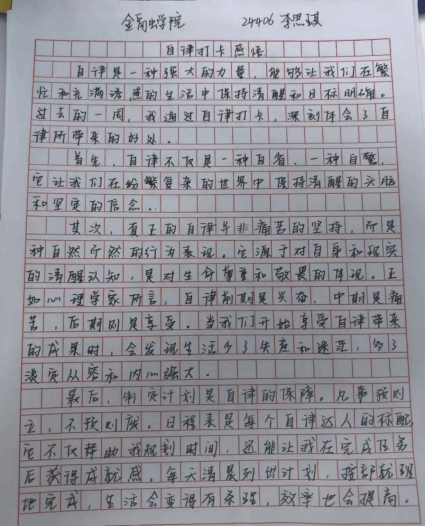 金融学院 24406 李思琪
自律打卡感悟
自律是一种强大的力量，能够让我们在繁
忙和充满诱惑的生活中保持清醒和目标明确。
过去的一周，我通过自律打卡，深刻体会了自
律所带来的好处。
首先，自律不仅是一种自省、一种自警，
它让我们在纷繁复杂的世界中保持清醒的头脑
和坚定的信念。
其次，真正的自律并非痛苦的坚持，而是
种自然而然的行为表现。它源于对自身和现实
的清醒认知，是对生命尊重和敬畏的体现。正
如心理学家所言，自律前期是兴奋，中期是痛
苦，后期则是享受。当我们开始享受自律带来
的成果时，会发现生活少了焦虑和迷茫，多了
淡定从容和内心强大。
最后，制定计划是自律的保障。凡事预则
立，不预则废。日程表是每个自律达人的标配
它不仅帮助我规划时间，还能让我在完成任务
后获得成就感。每天清晨列出计划，按部就班
地完成，生活会变得有条理，效率也会提高。